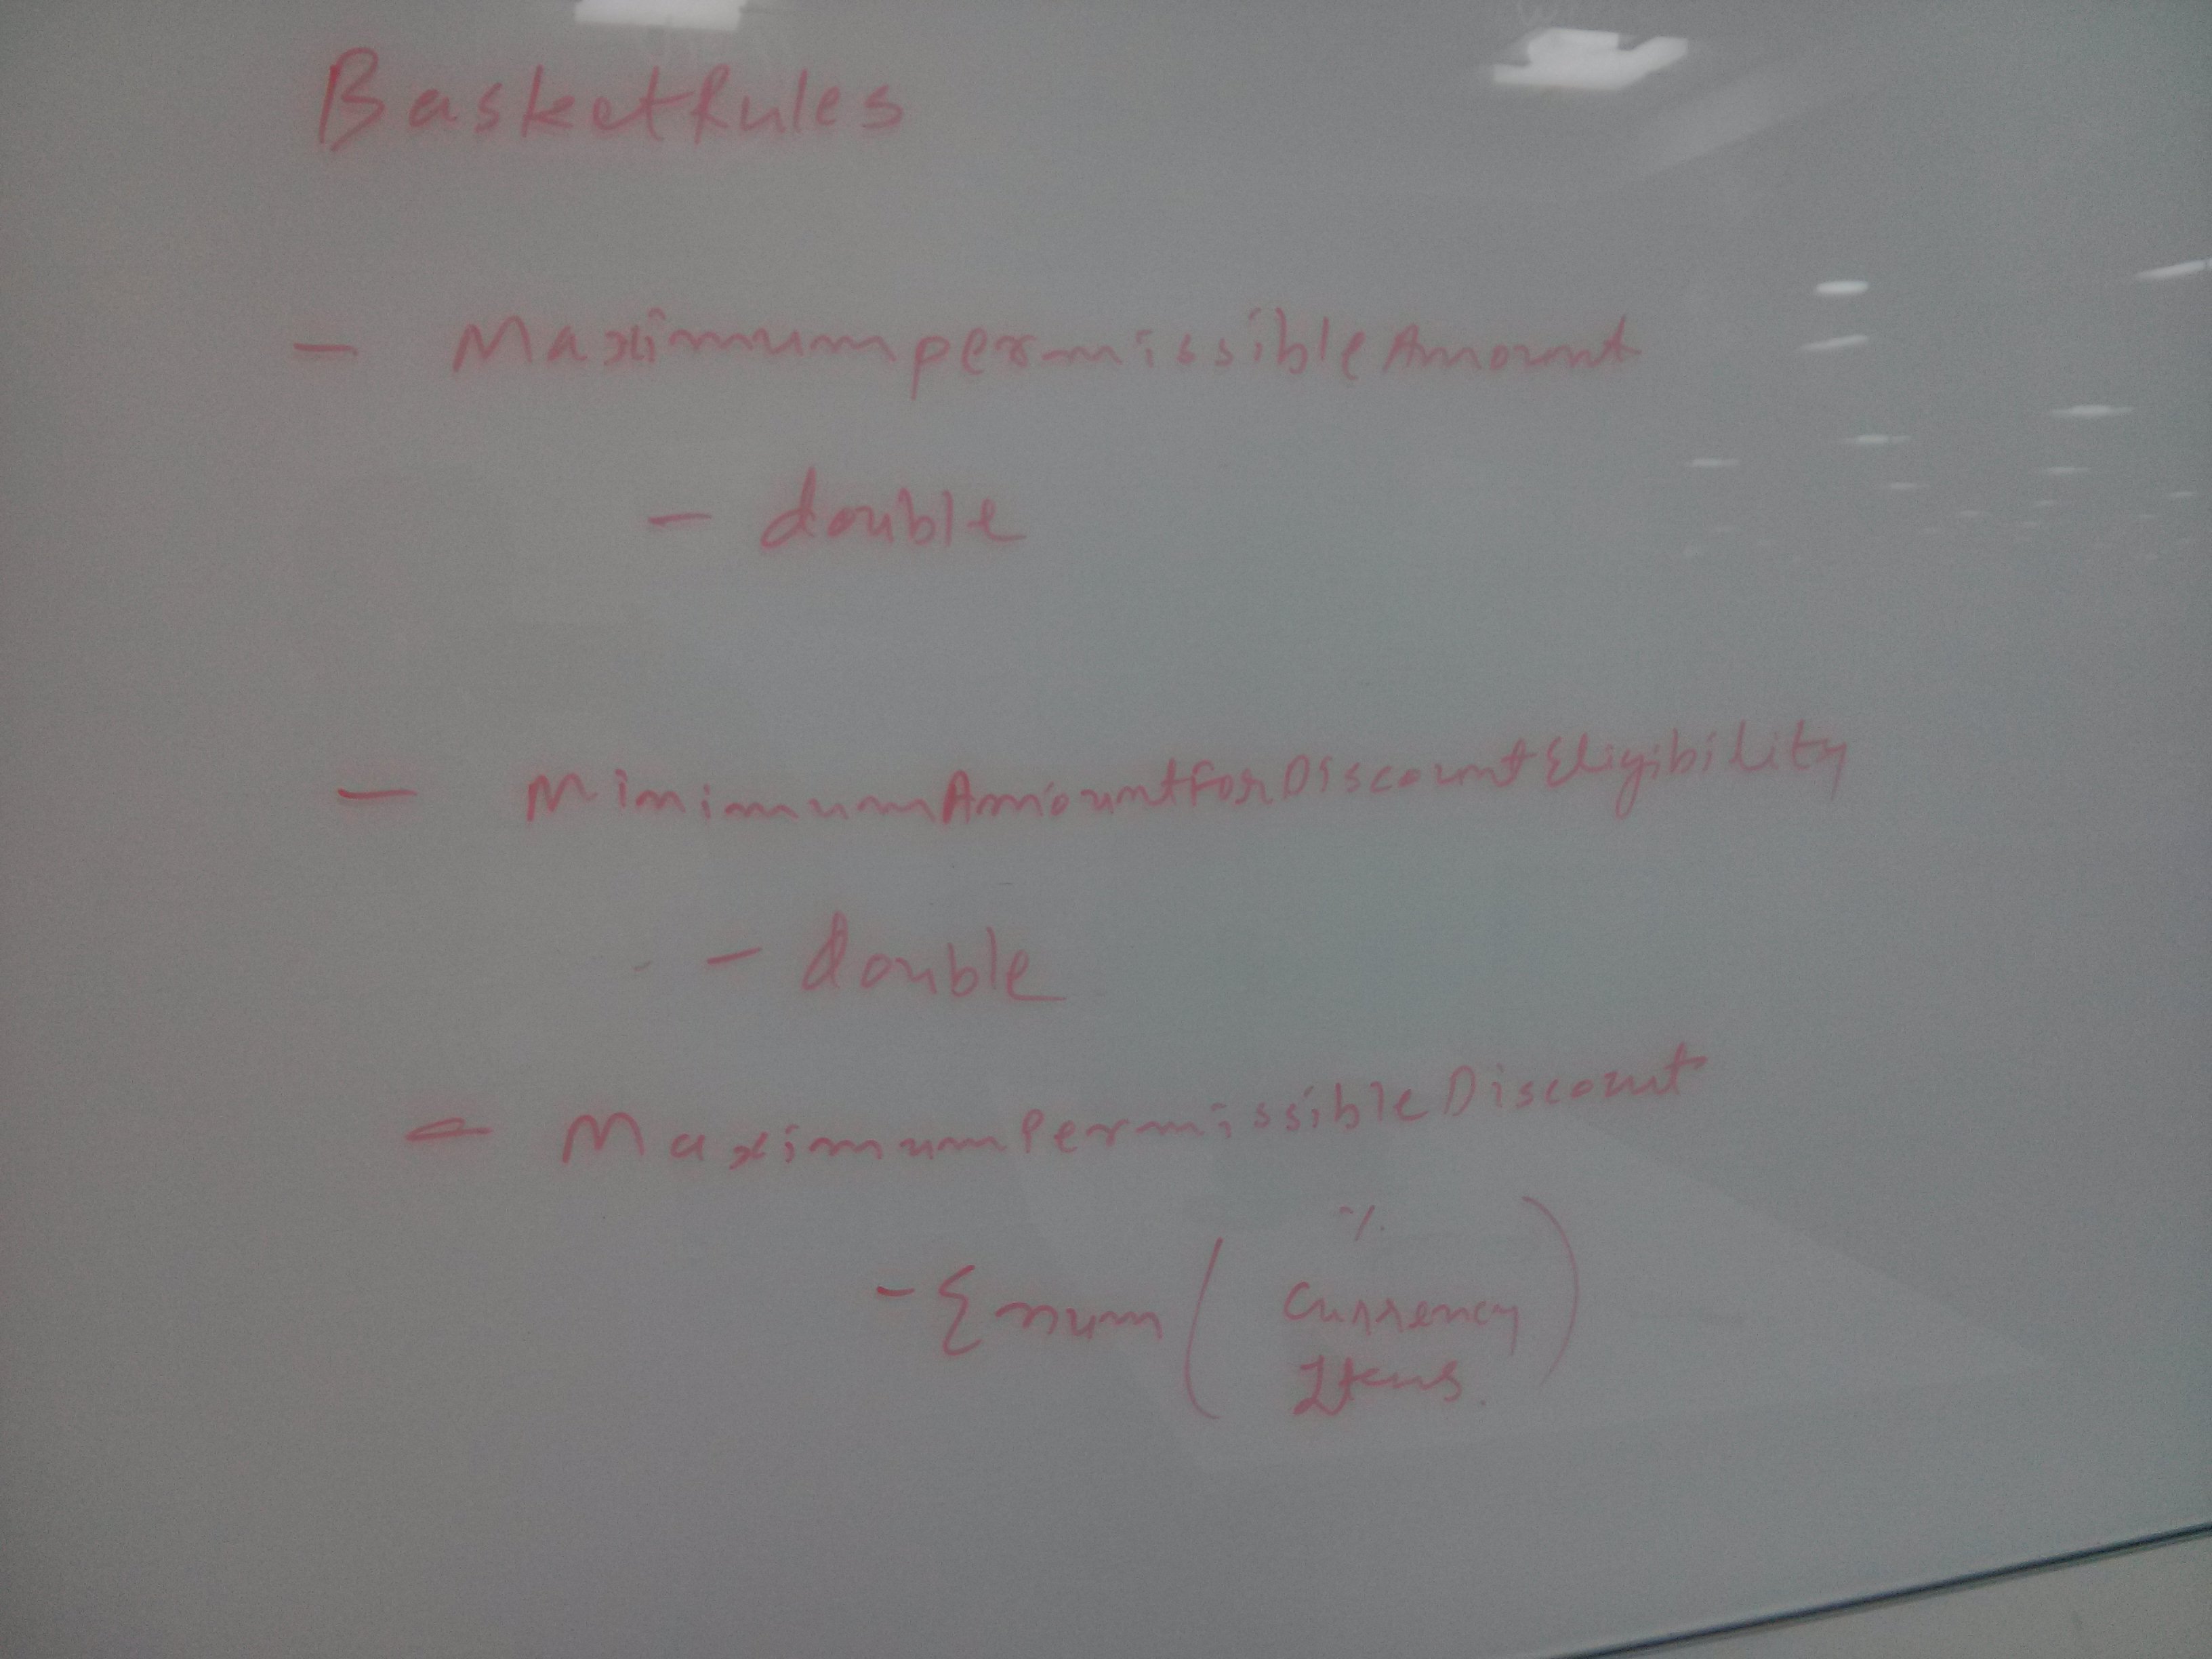 BasketRules
- MaximumpermissibleAmount
- double
- MinimumAmountforDiscountEligibility
- double
- MaximumPermissibleDiscount
%
- Enum ( Currency )
Items.